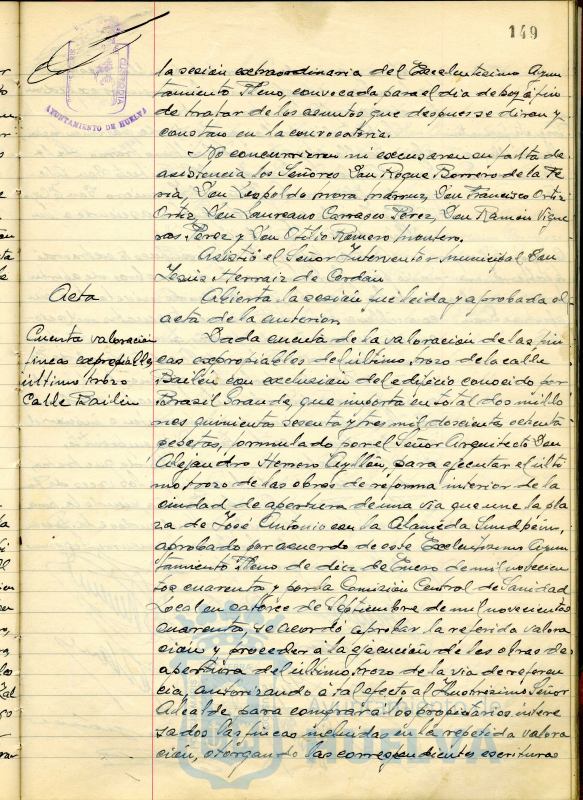 149
AYUNTAMIENTO DE HUELVA
la sesión extraordinaria del Excelentísimo Ayun
tamiento Pleno, convocada para el día de hoy á fin
de tratar de los asuntos que despues se diran y
constan en la convocatoria.
No concurrieron ni excusaron su falta de
asistencia los Señores Don Roque Borrero de la Fe
ria, Don Leopoldo Mora Don Francisco Ortiz
Ortiz, Don Laureano Carrasco Pérez, Don Ramón Vigue
ras Pérez y Don Otilio Romero Montero.
Asistió el Señor Interventor Municipal Don
Jesús Herraiz de Cordán
Acta
Abierta la sesión fué leida y aprobada el
acta de la anterior.
Cuenta valoración
fincas expropiables
último trozo
Calle Bailén
Dada cuenta de la valoración de las fin
cas expropiables del último trozo de la calle
Bailén con exclusión del edificio conocido por
Brasil Grande, que importa en total dos millo
nes quinientas sesenta y tres mil doscientas
pesetas, formulado por el Señor Arquitecto Don
Alejandro Herrero Ayllón, para ejecutar el últi
mo trozo de las obras de reforma interior de la
ciudad de apertura de una via que une la pla
za de José Antonio con la Alameda Sundheim,
aprobado por acuerdo de este Excelentísimo Ayun
tamiento Pleno de diez de Enero de mil novecien
tos cuarenta y por la Comisión Central de Sanidad
Local en catorce de Septiembre de mil novecientos
cuarenta, se acordó aprobar la referida valora
ción y proceder á la ejecución de las obras de
apertura del último trozo de la via de referen
cia, autorizando á tal efecto al Ilustrísimo Señor
Alcalde para comprar á los propietarios intere
sados las fincas incluidas en la repetida valora
ción, otorgando las correspondientes escrituras